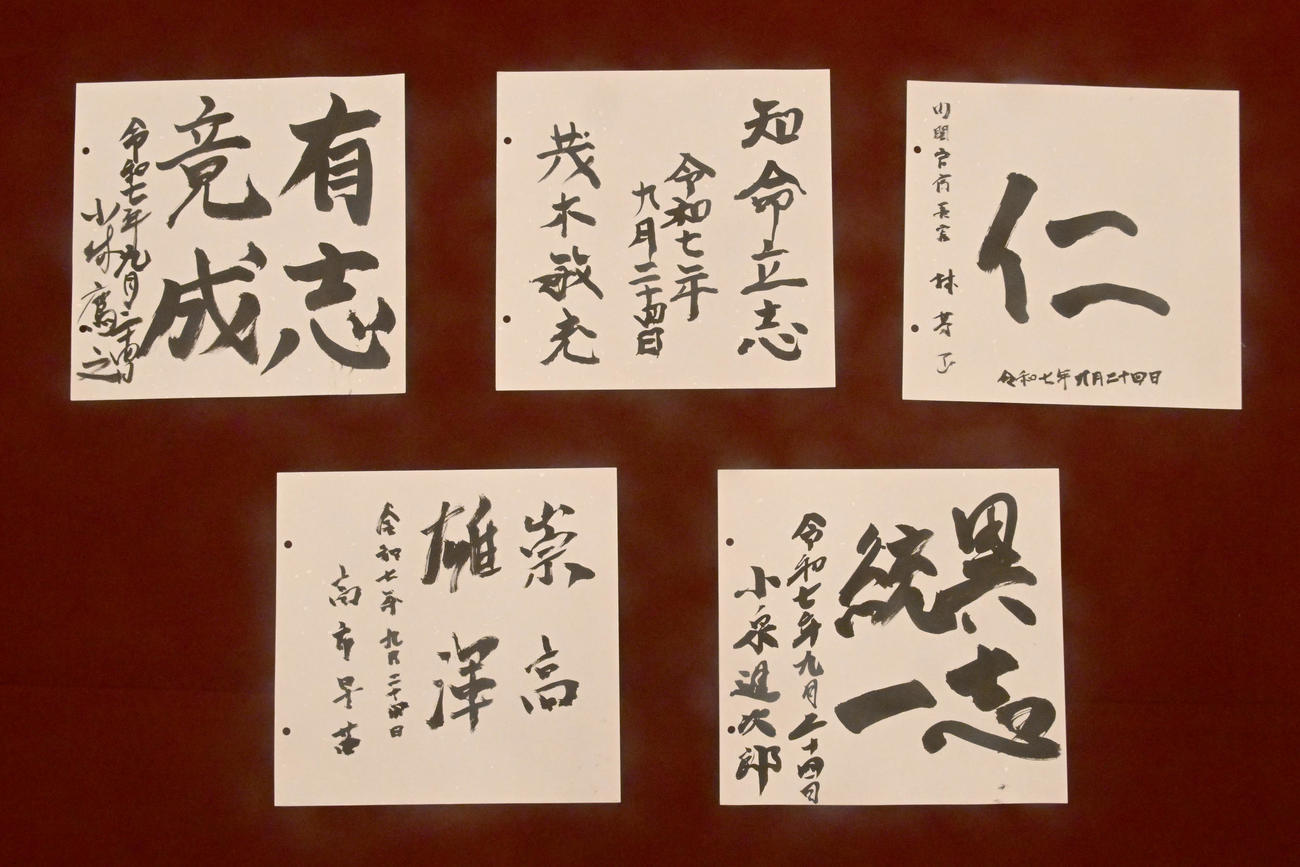 有志
竟成
令和七年九月二十四日
小林鷹之
知命立志
令和七年
九月二十四日
茂木敏充
仁
内閣官房長官 林 芳正
令和七年九月二十四日
崇高
雄渾
令和七年九月二十四日
高市早苗
異志
統一
令和七年九月二十四日
小泉進次郎